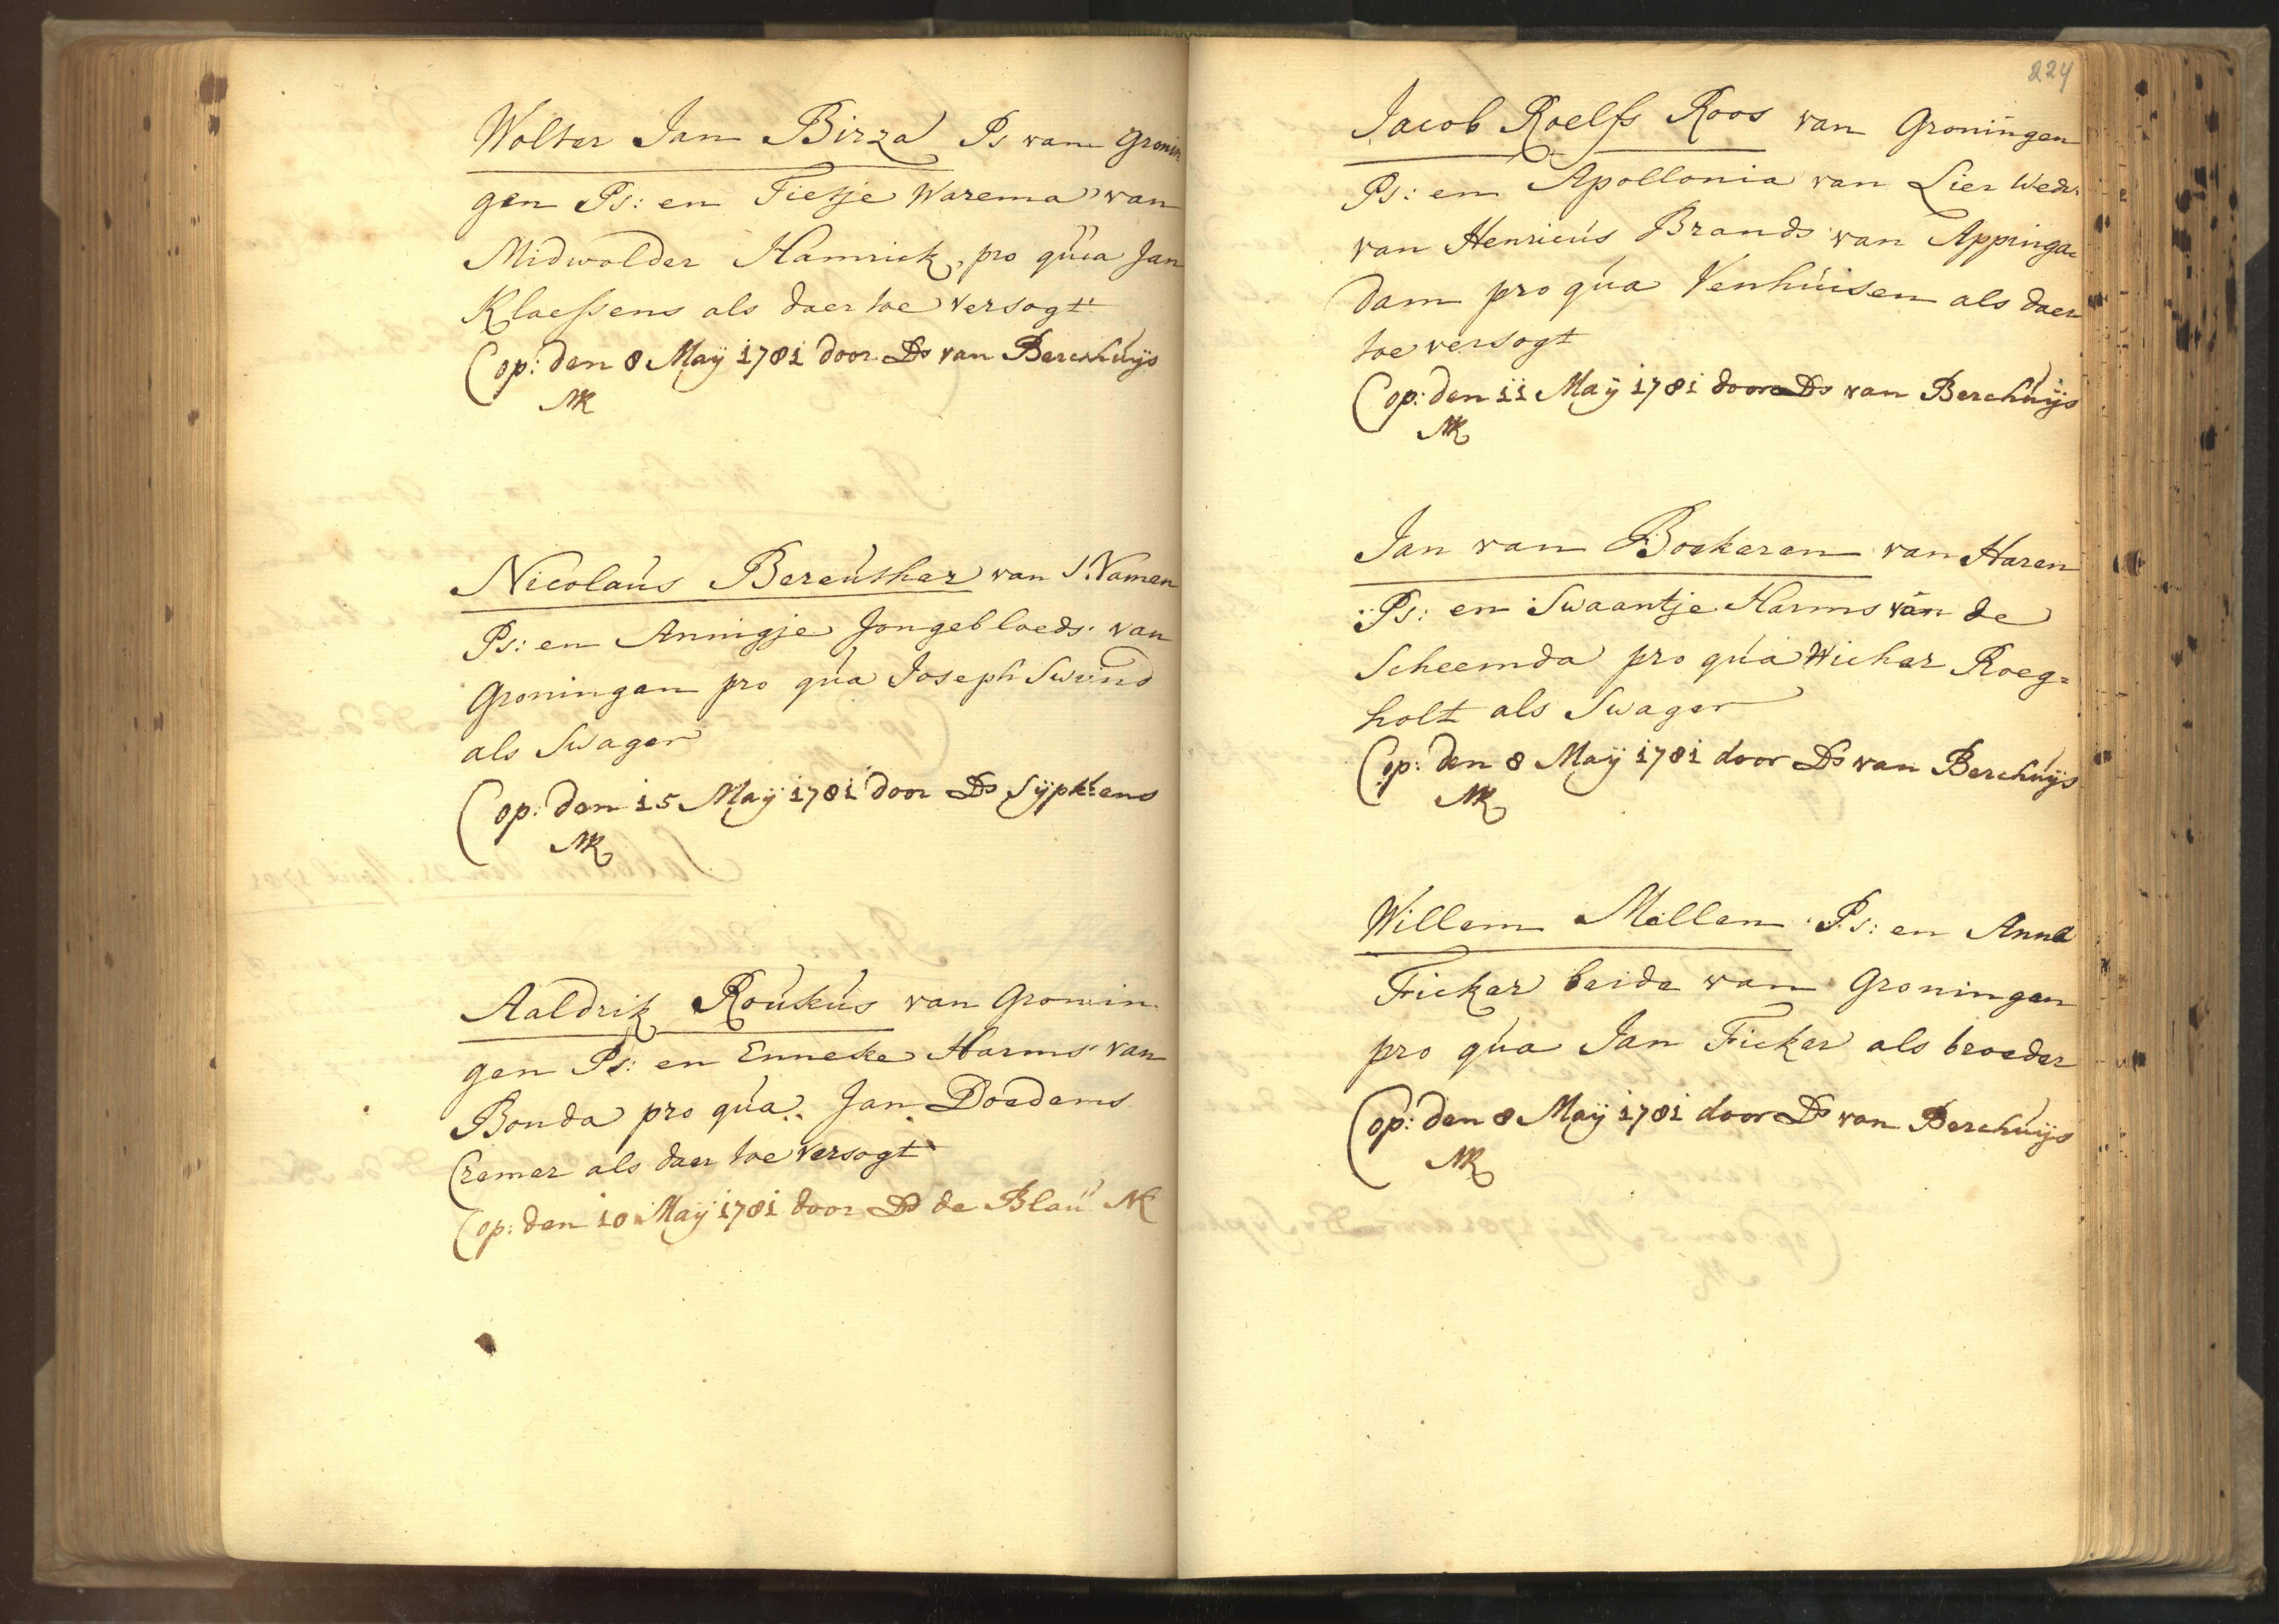 Wolter Jan Birza Ps van Gronin
gen Ps: en Fietje Warema van
Midwolder Hamrick, pro qua Jan
Klaessens als daer toe versogt
Cop: den 8 Maÿ 1781 door Ds van Berchuÿs
NK
Nicolaus Bereuther van S. Namen
Ps: en Annigje Jongebloeds van
Groningen pro qua Joseph Swind
als Swager
Cop: den 15 Maÿ 1781 door Ds Sÿpkens
NK
Aaldrik Roukus van Gronin
gen Ps: en Enneke Harms van
Bonda pro qua Jan Doedems
Cremer als daer toe versogt
Cop: den 10 Maÿ 1781 door Ds de Blau NK
224
Jacob Roelfs Roos van Groningen
Ps: en Apollonia van Lier Wed:
van Henricus Brands van Appinga
dam pro qua Venhuisen als daer
toe versogt
Cop: den 11 Maÿ 1781 door Ds van Berchuÿs
NK
Jan van Boekeren van Haren
Ps: en Swaantje Harms van de
Scheemda pro qua Wicher Roeg=
holt als Swager
Cop: den 8 Maÿ 1781 door Ds van Berchuÿs
NK
Willem Mellen Ps: en Anna
Ficker beide van Groningen
pro qua Jan Ficker als broeder
Cop: den 8 Maÿ 1781 door Ds van Berchuÿs
NK